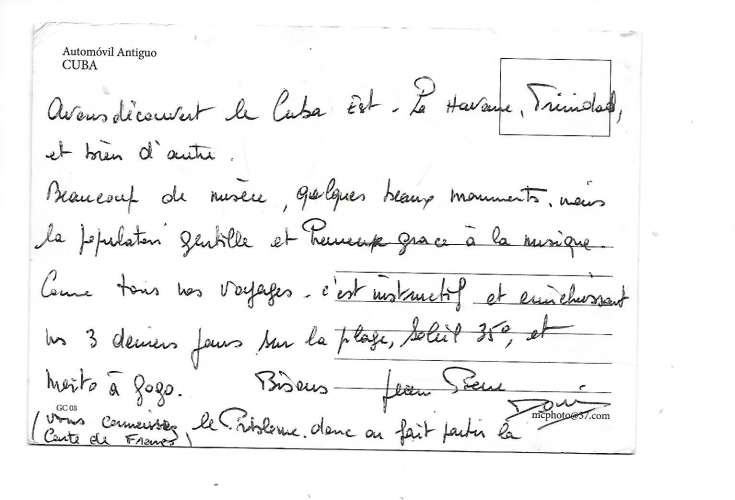 Automóvil Antiguo
CUBA
Avons découvert le Cuba Est - La Havane, Trinidad,
et bien d'autre.
Beaucoup de misère, quelques beaux monuments. mais
la population gentille et heureuse grace à la musique.
Comme tous nos voyages - c'est instructif et enrichissant
nos 3 derniers jours sur la plage, Soleil 35°, et
Mojito à gogo. Bisous Jean Pierre
GC 03
mcphoto@57.com
(vous connaissez le Problème. donc on fait partir la
Carte de France)